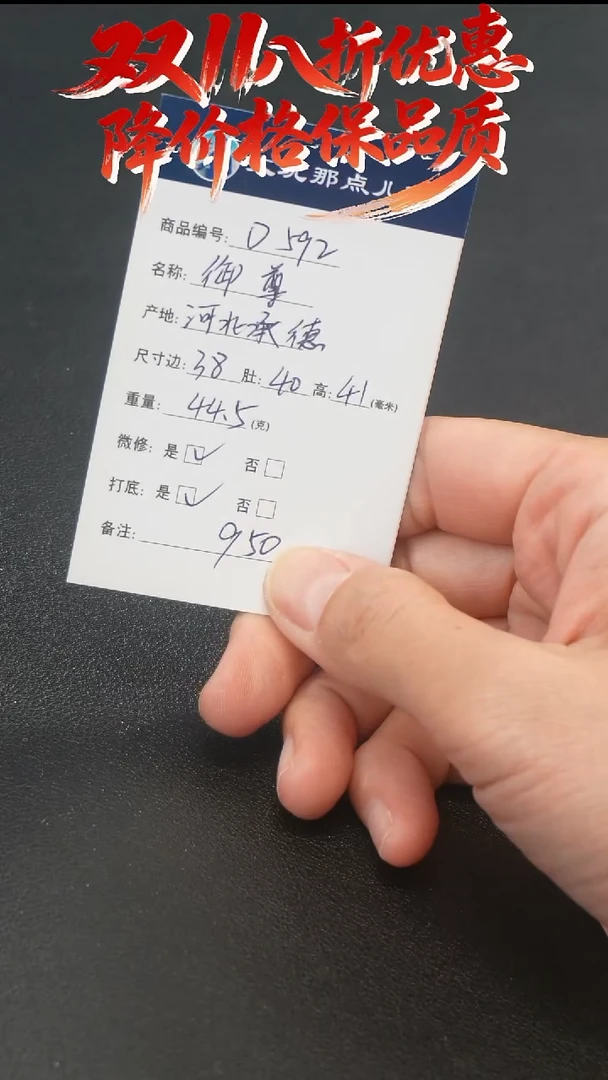 双11八折优惠
降价格保品质
那点儿
商品编号: D592
名称: 御尊
产地: 河北承德
尺寸边: 38 肚: 40 高: 41 (毫米)
重量: 44.5 (克)
微修: 是☑ 否□
打底: 是☑ 否□
备注: 950